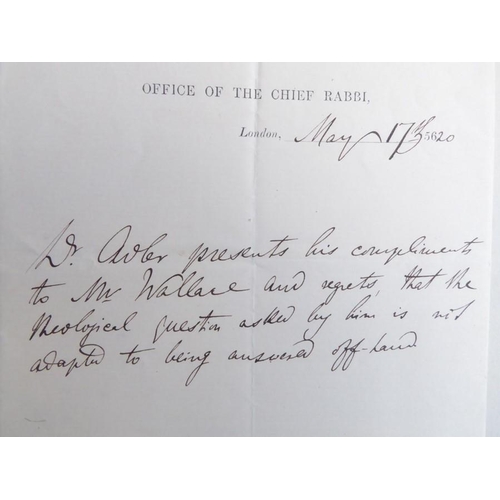 OFFICE OF THE CHIEF RABBI,
London, May 17th 5620
Dr. Adler presents his compliments
to Mr Wallace and regrets, that the
theological question asked by him is not
adapted to being answered off-hand